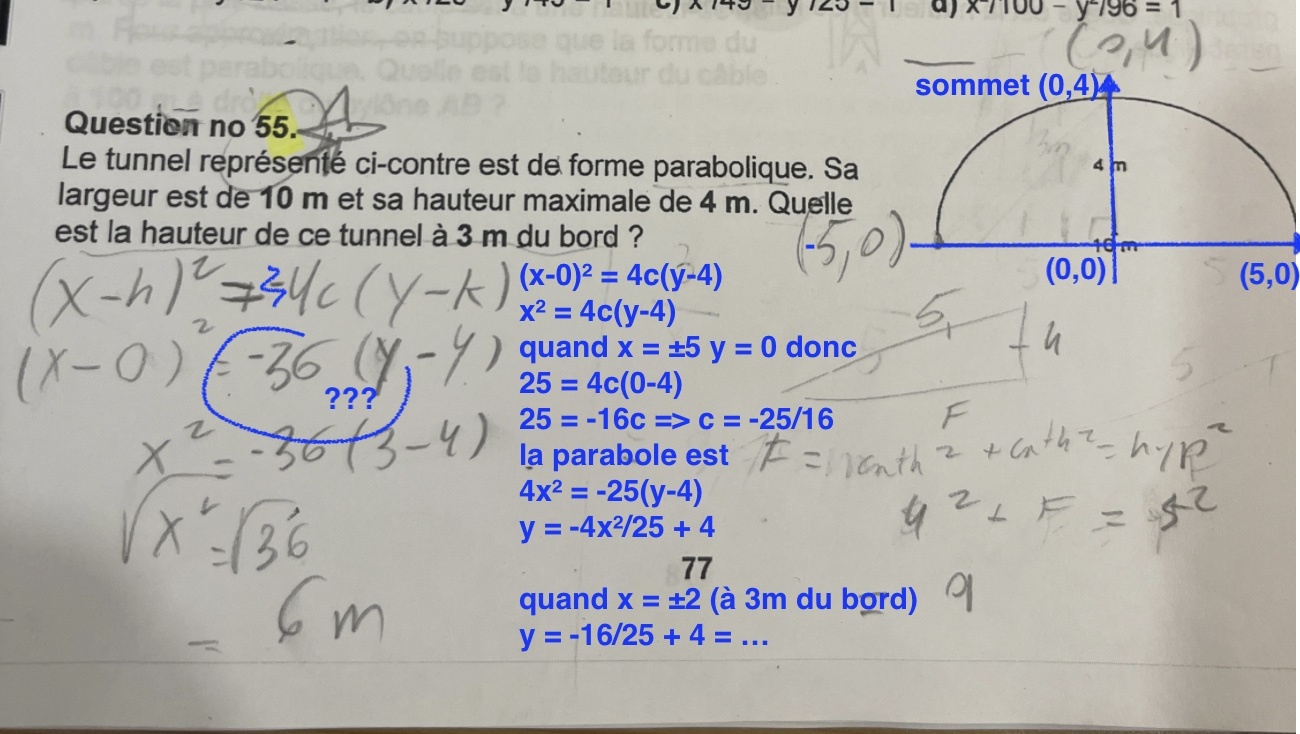 c) x²/49 - y²/25 = 1 d) x²/100 - y²/96 = 1
m. Pour approximation, on suppose que la forme du
câble est parabolique. Quelle est la hauteur du câble
(0,4)
sommet (0,4)
Question no 55.
Le tunnel représenté ci-contre est de forme parabolique. Sa
largeur est de 10 m et sa hauteur maximale de 4 m. Quelle
est la hauteur de ce tunnel à 3 m du bord ?
4 m
16 m
(-5,0)
(0,0)
(5,0)
(x-h)² = 4c(y-k)
(x-0)² = -36(y-4)
???
x² = -36(3-4)
√x² = √36
= 6 m
(x-0)² = 4c(y-4)
x² = 4c(y-4)
quand x = ±5 y = 0 donc
25 = 4c(0-4)
25 = -16c => c = -25/16
la parabole est
4x² = -25(y-4)
y = -4x²/25 + 4
77
quand x = ±2 (à 3m du bord)
y = -16/25 + 4 = …
5
4
F
F = cath² + cath² = hyp²
4² + F = 5²
= 9